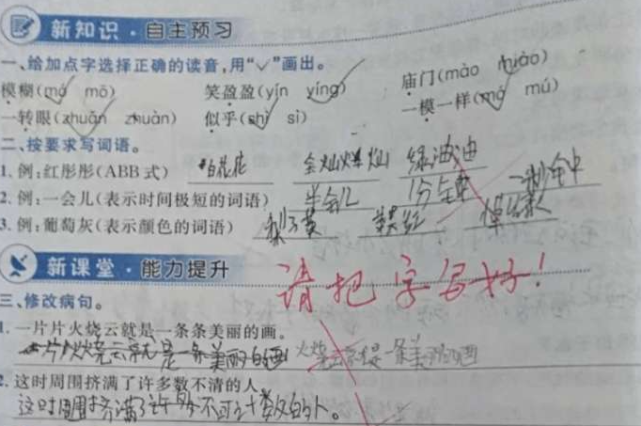 新知识·自主预习
一、给加点字选择正确的读音,用“✓”画出。
模糊(mó mō) 笑盈盈(yín yíng) 庙门(mào miào)
一转眼(zhuǎn zhuàn) 似乎(shì sì) 一模一样(mó mú)
二、按要求写词语。
1. 例:红彤彤(ABB式) 白花花 金灿灿 绿油油
2. 例:一会儿(表示时间极短的词语) 半会儿 1分钟 秒钟
3. 例:葡萄灰(表示颜色的词语) 梨子黄
新课堂·能力提升
请把字写好!
三、修改病句。
1. 一片片火烧云就是一条条美丽的画。
一片火烧云就是一条美丽的画 火烧云是一条美丽的画
2. 这时周围挤满了许多数不清的人。
这时周围挤满了许多不可计数的人。